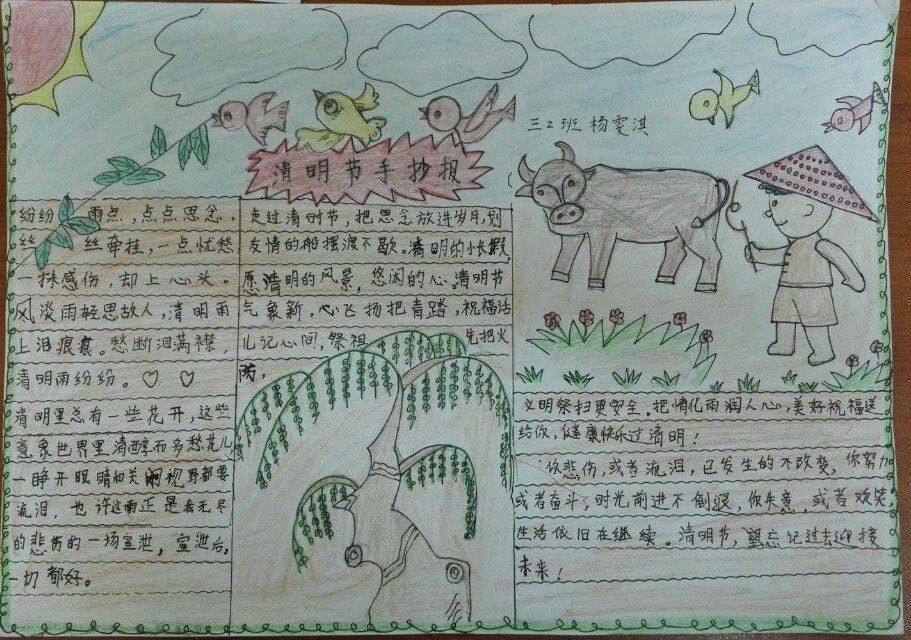 三2班 杨雯淇
清明节手抄报
纷纷 雨点,点点思念,
丝 丝牵挂,一点忧愁
一抹感伤,却上心头。
风淡雨轻思故人,清明雨
上泪痕衰。愁断泪满襟,
清明雨纷纷。
清明里总有一些花开,这些
意象世界里清醇而多愁花儿
一睁开眼睛如关闸视野都要
流泪,也许这雨正是春无尽
的悲伤的一场宣泄,宣泄后,
一切都好。
走过清明节,把思念放进岁月,划
友情的船摆渡不歇。清明的小长假,
愿清明的风景,悠闲的心,清明节
气象新,心飞扬把青踏,祝福话
儿记心间,祭祖 先把火
防,
文明祭扫更安全。把情化雨润人心,美好祝福送
给你,健康快乐过清明!
你悲伤,或者流泪,已发生的不改变,你努力
或者奋斗,时光前进不倒退,你失意,或者欢笑
生活依旧在继续。清明节,望忘记过去迎接
未来!